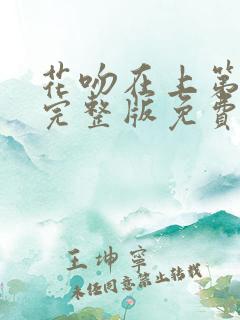 花吻在上第
完整版免费
王坤宁
未经同意禁止转载